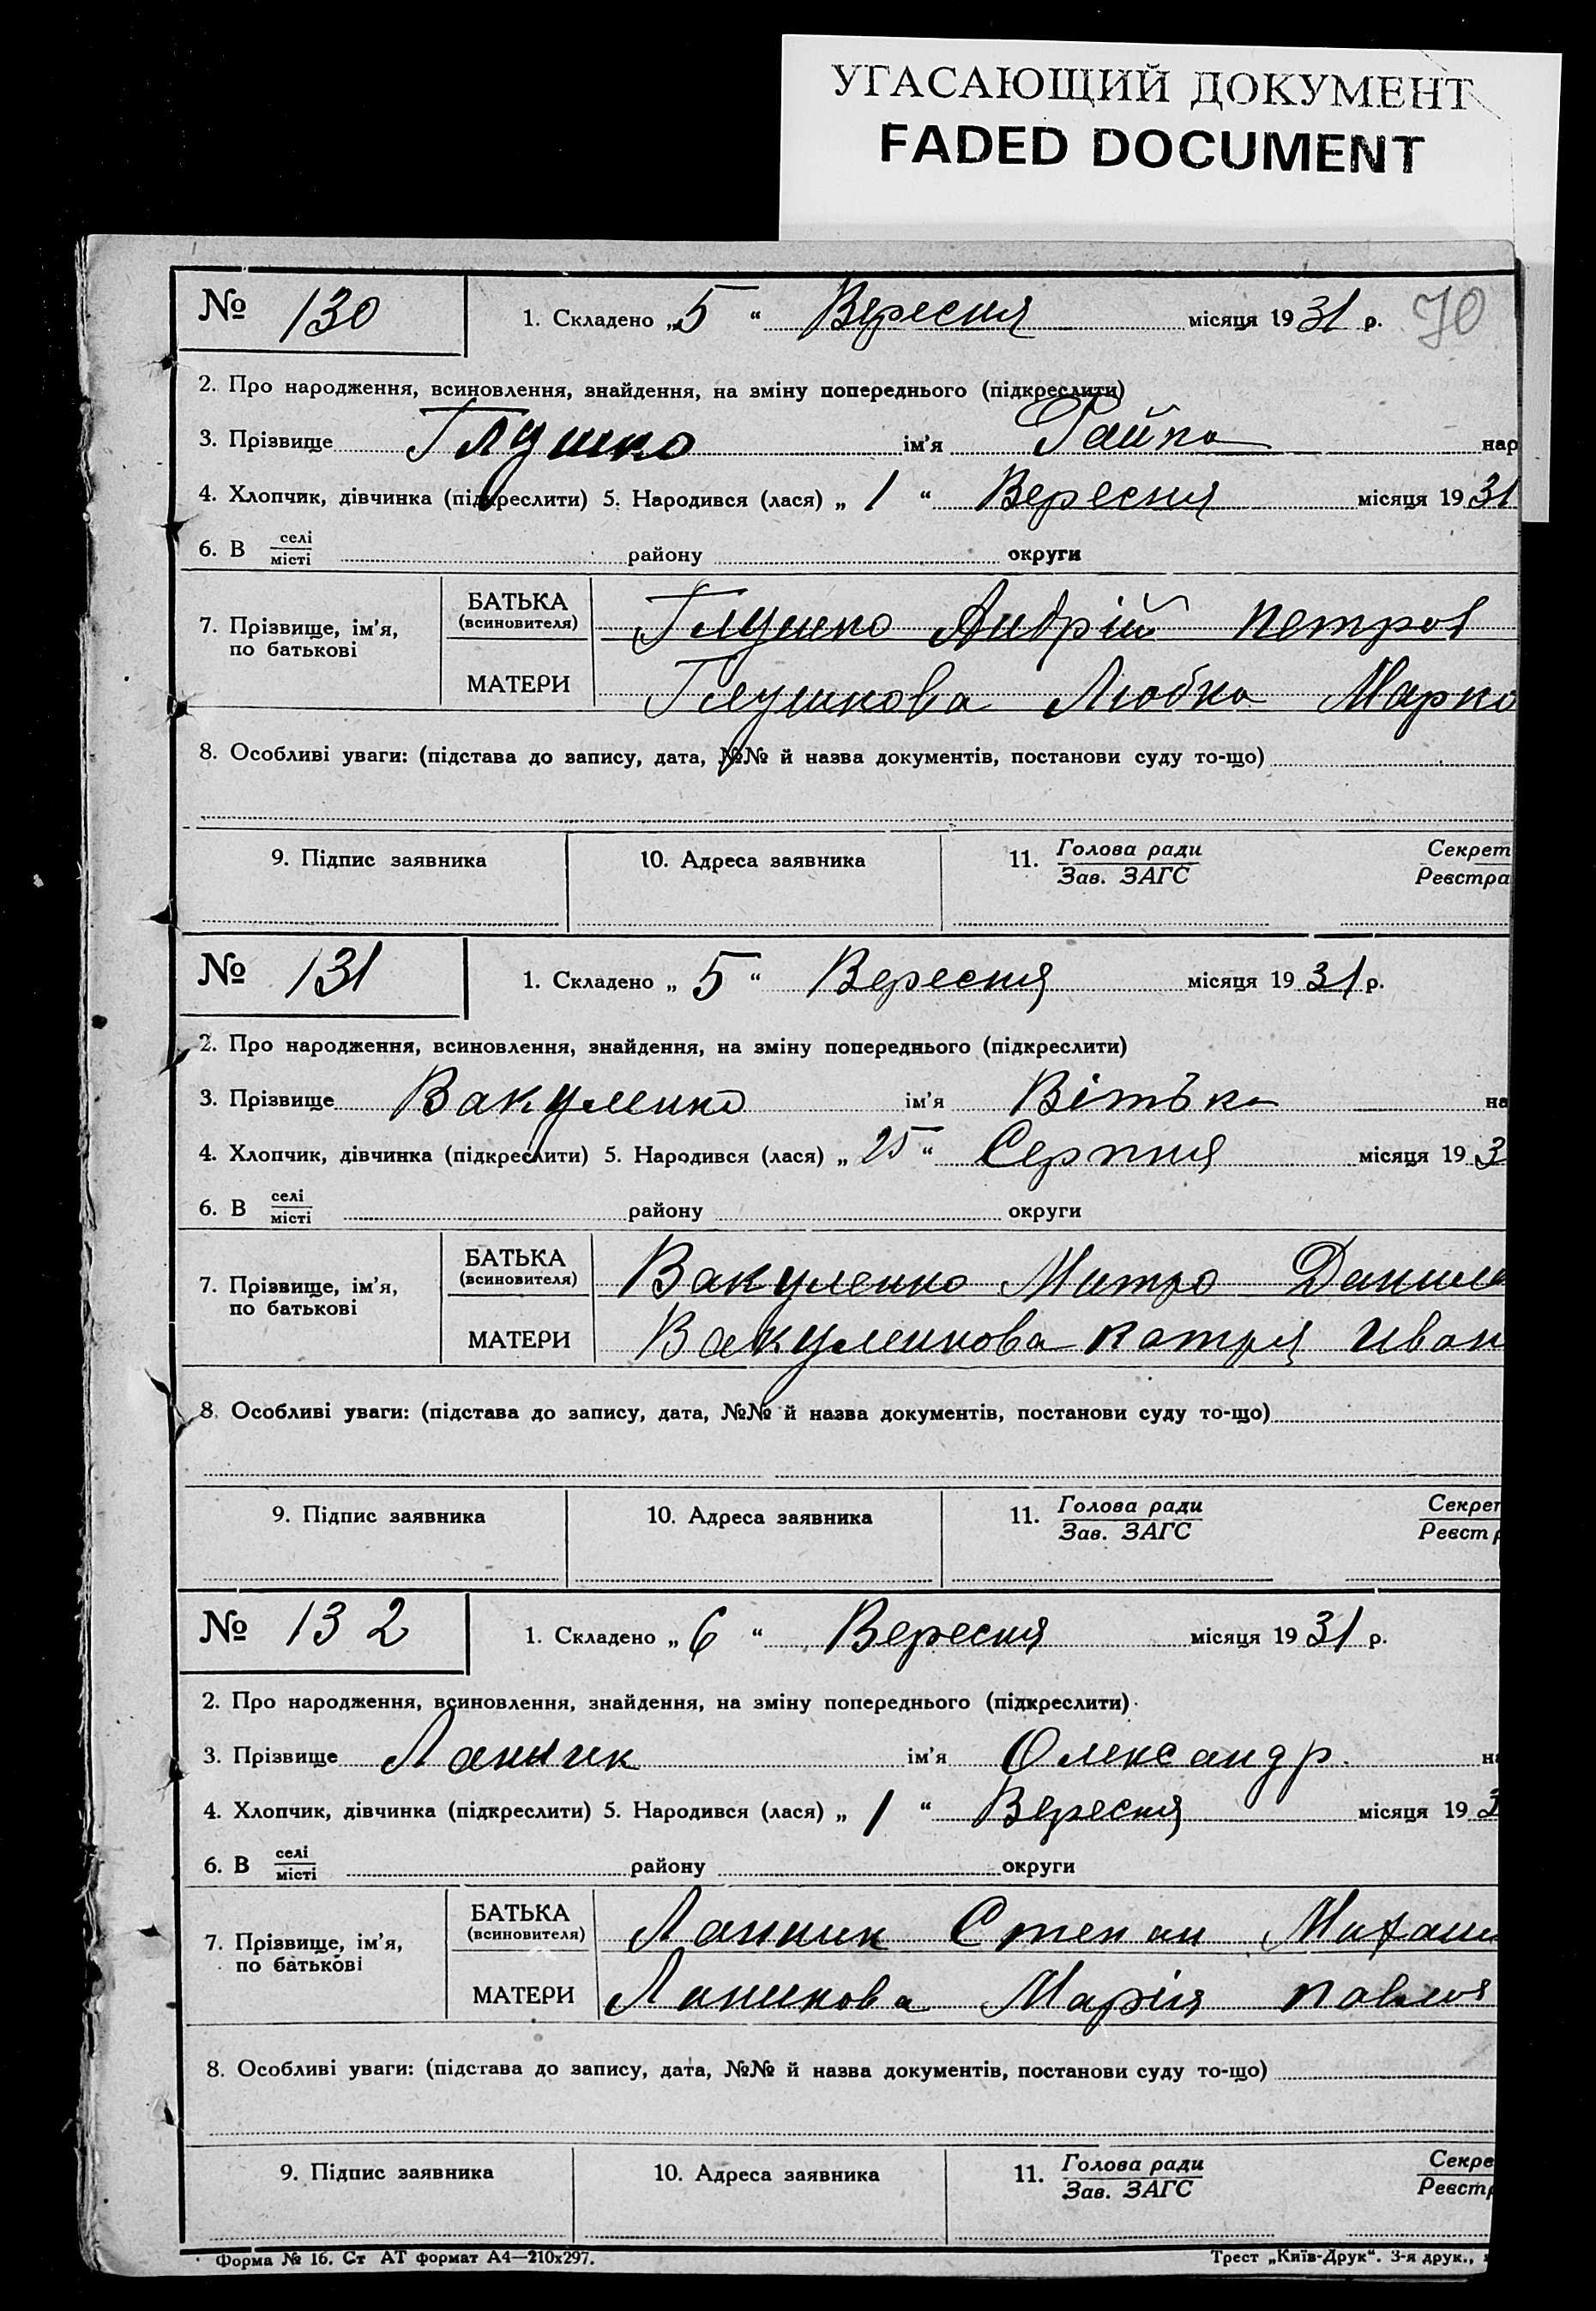 УГАСАЮЩИЙ ДОКУМЕНТ
FADED DOCUMENT
№ 130 1. Складено „5“ Вересня місяця 1931 р. 70
2. Про народження, всиновлення, знайдення, на зміну попереднього (підкреслити)
3. Прізвище Глушко ім'я Райка нар
4. Хлопчик, дівчинка (підкреслити) 5. Народився (лася) „1“ Вересня місяця 1931
6. В селі місті району округи
7. Прізвище, ім'я, по батькові
БАТЬКА (всиновителя) Глушко Андрій Петров
МАТЕРИ Глушкова Любка Марко
8. Особливі уваги: (підстава до запису, дата, №№ й назва документів, постанови суду то-що)
9. Підпис заявника 10. Адреса заявника 11. Голова ради Секрет
Зав. ЗАГС Реєстра
№ 131 1. Складено „5“ Вересня місяця 1931 р.
2. Про народження, всиновлення, знайдення, на зміну попереднього (підкреслити)
3. Прізвище Вакуленко ім'я Вітька на
4. Хлопчик, дівчинка (підкреслити) 5. Народився (лася) „25“ Серпня місяця 193
6. В селі місті району округи
7. Прізвище, ім'я, по батькові
БАТЬКА (всиновителя) Вакуленко Митро Данило
МАТЕРИ Вакуленкова Катря Иван
8. Особливі уваги: (підстава до запису, дата, №№ й назва документів, постанови суду то-що)
9. Підпис заявника 10. Адреса заявника 11. Голова ради Секрет
Зав. ЗАГС Реєстр
№ 132 1. Складено „6“ Вересня місяця 1931 р.
2. Про народження, всиновлення, знайдення, на зміну попереднього (підкреслити)
3. Прізвище Ланник ім'я Олександр на
4. Хлопчик, дівчинка (підкреслити) 5. Народився (лася) „1“ Вересня місяця 193
6. В селі місті району округи
7. Прізвище, ім'я, по батькові
БАТЬКА (всиновителя) Ланник Степан Михаи
МАТЕРИ Ланикова Марія Павлов
8. Особливі уваги: (підстава до запису, дата, №№ й назва документів, постанови суду то-що)
9. Підпис заявника 10. Адреса заявника 11. Голова ради Секре
Зав. ЗАГС Реєстр
Форма № 16. Ст АТ формат А4—210х297. Трест „Київ-Друк“. 3-я друк.,